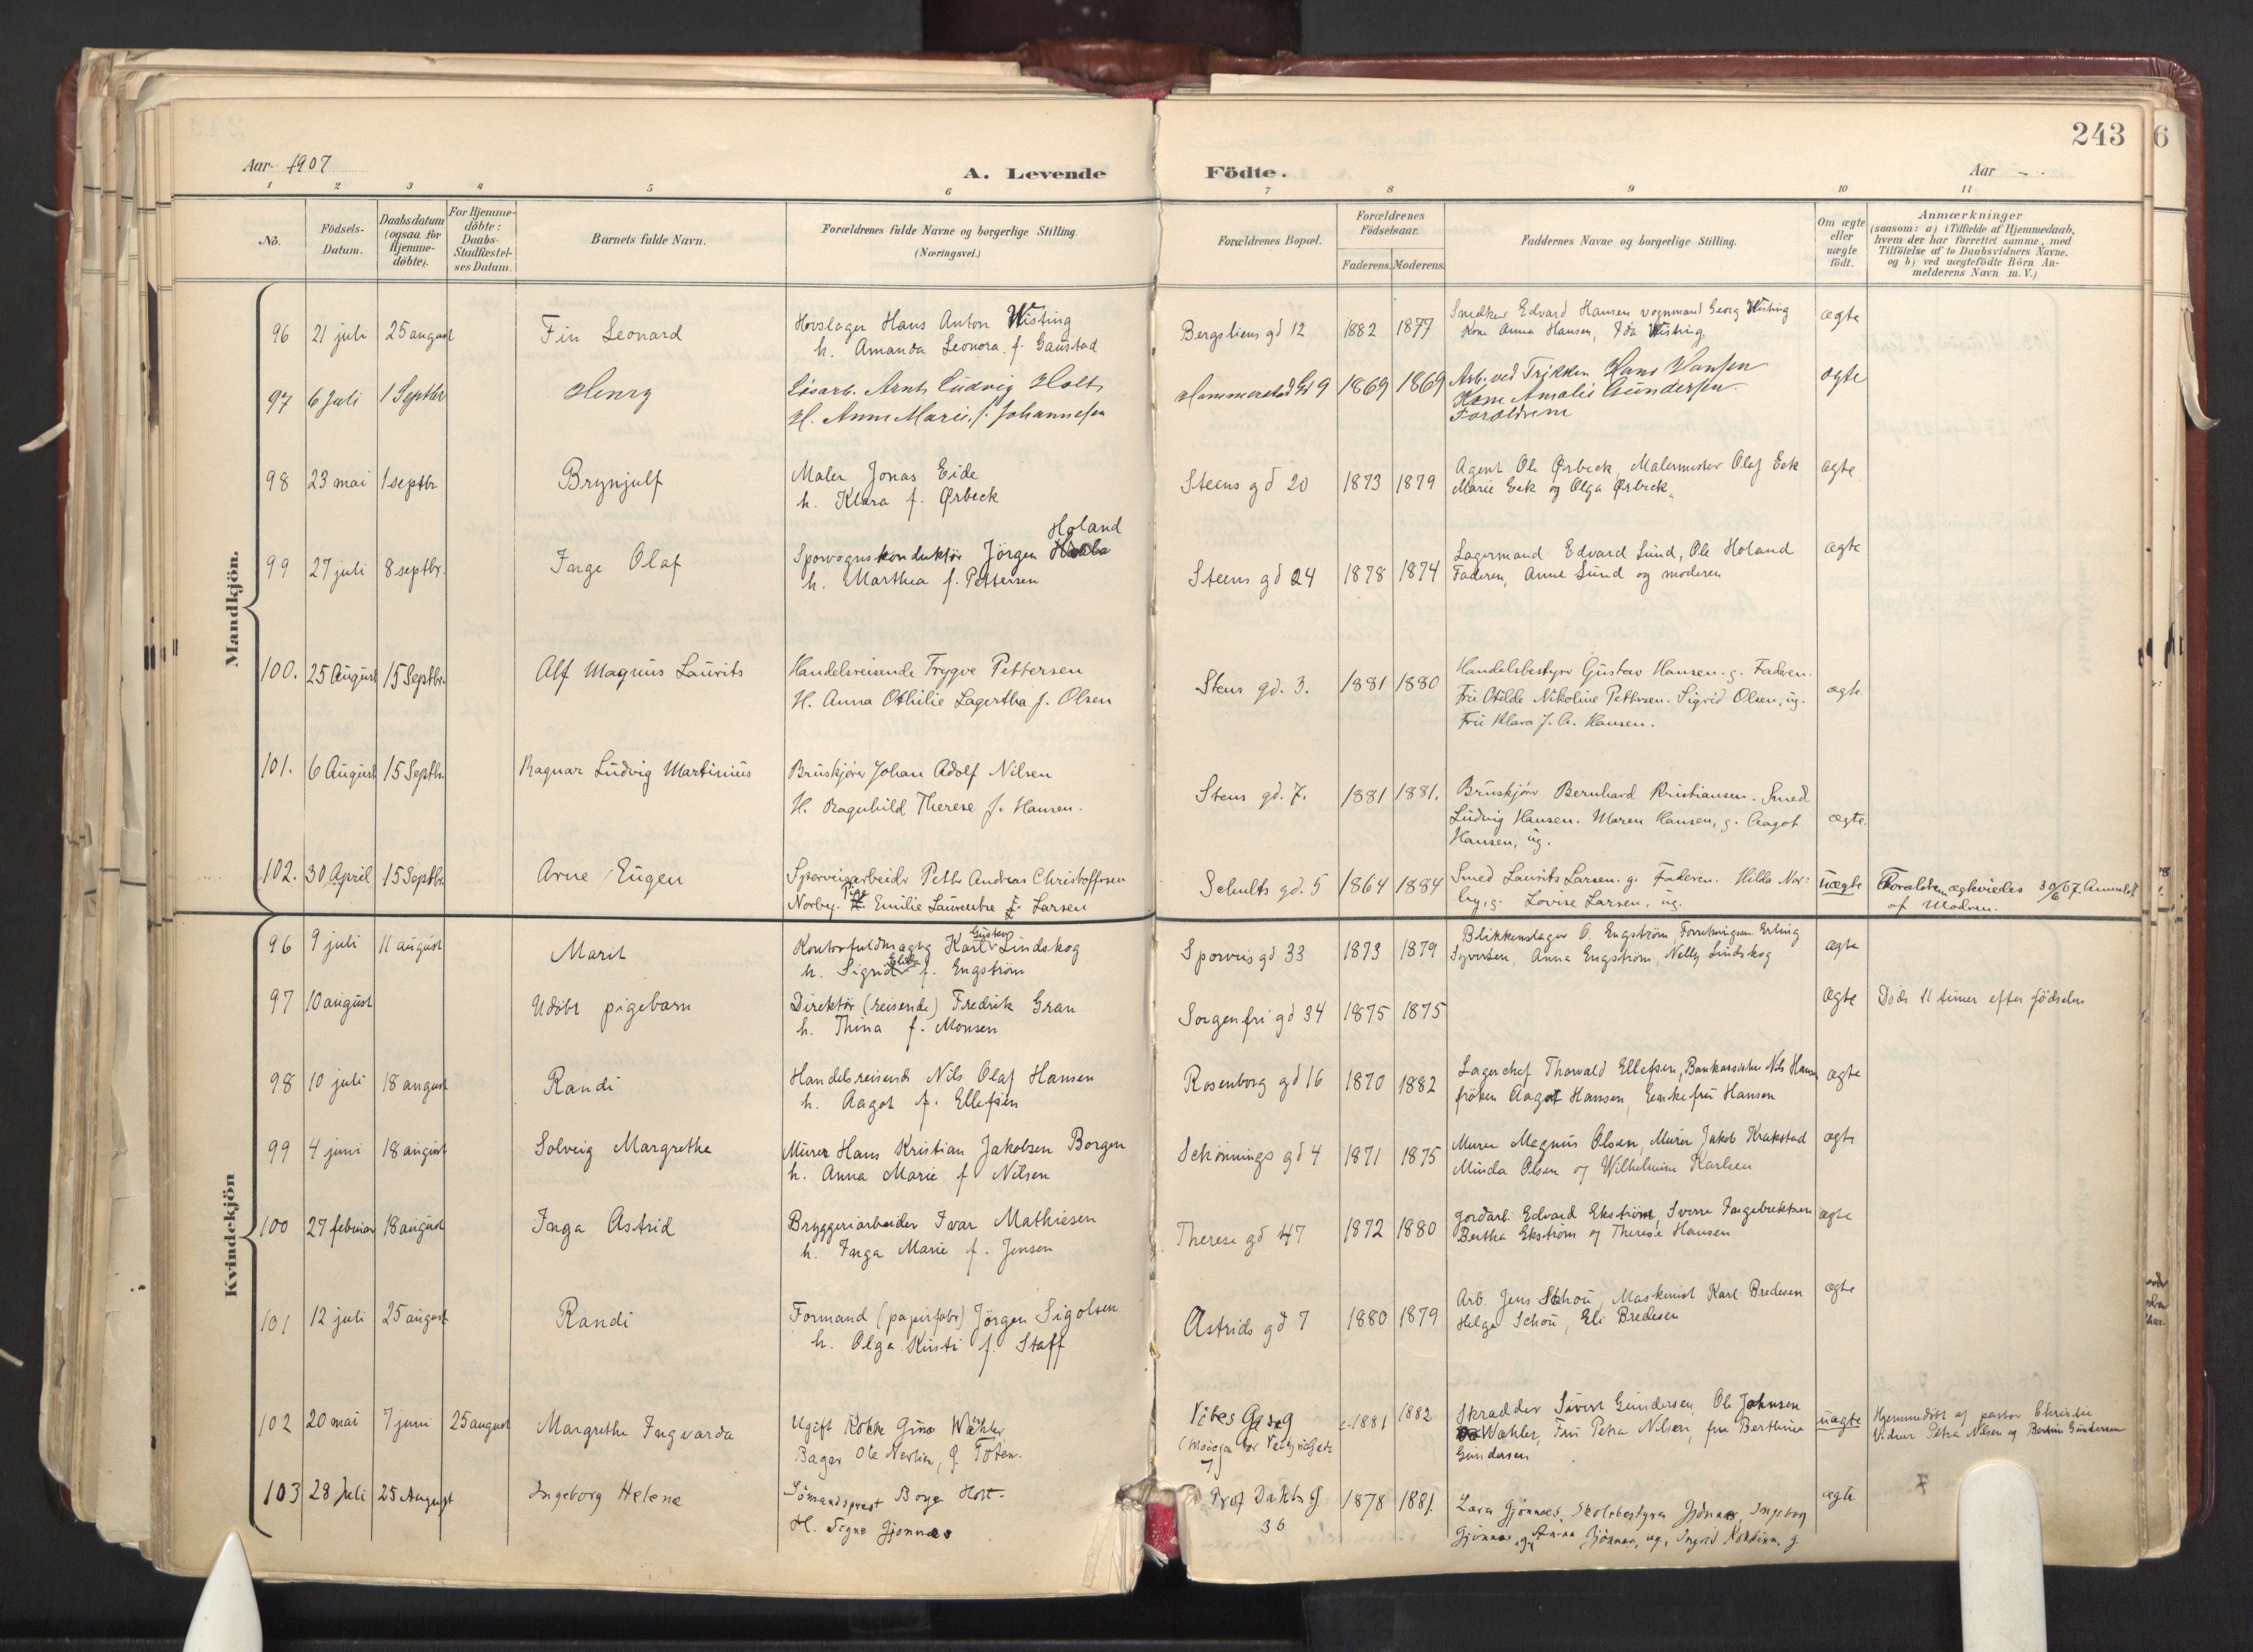 243
6
Aar 1907
A. Levende Födte.
Aar - -
1 2 3 4 5 6 7 8 9 10 11
No.
Födsels-
Datum.
Daabsdatum
(ogsaa for
Hjemme-
döbte).
For Hjemme-
döbte:
Daabs-
Stadfæstel-
ses Datum.
Barnets fulde Navn.
Forældrenes fulde Navne og borgerlige Stilling.
(Næringsvei.)
Forældrenes Bopæl.
Forældrenes
Födselsaar.
Faderens. Moderens.
Faddernes Navne og borgerlige Stilling.
Om ægte
eller
uægte
födt.
Anmærkninger
(saasom: a) i Tilfælde af Hjemmedaab,
hvem der har forrettet samme, med
Tilföielse af to Daabsvidners Navne,
og b) ved uægtefödte Börn An-
melderens Navn m. V.)
Mandkjön.
96 21 juli 25 august Fin Leonard
Hovslager Hans Anton Wisting
h. Amanda Leonora f. Gaustad
Bergsliens gd 12 1882 1877
Smedker Edvard Hansen vognmand Georg Wisting
Kone Anna Hansen, Ida Wisting
ægte
97 6 Juli 1 Septbr Henry
Løsarb. Arnt Ludvig Holt
H. Anne Marie, f. Johannesen
Hammerstad Gd 9 1869 1869
Arb. ved Trikken Hans Hansen
Kone Amalie Gundersen
Forældrene
ægte
98 23 mai 1 septbr Brynjulf
Maler Jonas Eide
h. Klara f. Ørbeck
Steens gd 20 1873 1879
Agent Ole Ørbeck, Malermester Olaf Eek
Marie Eek og Olga Ørbeck
ægte
99 27 juli 8 septbr. Inge Olaf
Holand
Sporvognskonduktör Jörgen
h. Marthea f. Pettersen
Steens gd 24 1878 1874
Lagermand Edvard Lund, Ole Holand
Faderen, Anne Lund og moderen
ægte
100. 25 August 15 Septbr. Alf Magnus Laurits
Handelsreisende Trygve Pettersen
H. Anna Othilie Lagertha f. Olsen
Stens gd. 3. 1881 1880
Handelsbestyrer Gustav Hansen. g. Faderen.
Fru Otilde Nikoline Pettersen. Sigrid Olsen, ug.
Fru Klara J. A. Hansen.
ægte.
101. 6 August 15 Septbr. Ragnar Ludvig Martinius
Bruskjörer Johan Adolf Nilsen
H. Ragnhild Therese f. Hansen.
Stens gd. 7. 1881 1881.
Bruskjörer Bernhard Kristiansen. Smed
Ludvig Hansen. Maren Hansen, g. Aagot
Hansen, ug.
ægte.
102. 30 April 15 Septbr. Arne Eugen
Sporveisarbeider Petter Andreas Christoffersen
Norby. Pige Emilie Laurentse Larsen
Schults gd. 5 1864 1884
Smed Laurits Larsen. g. Faderen. Hilda Nor-
by, g. Lovise Larsen, ug.
uægte
Forældrene ægteviedes 30/6 07. Anmeldt
af Moderen.
Kvindekjön
96 9 juli 11 august Marit
Kontorfuldmægtig Karl Gustav Lindskog
h. Sigrid f. Engström
Sporveis gd 33 1873 1879
Blikkenslager O. Engström, Forretningsm. Erling
Syvertsen, Anna Engström, Nelly Lindskog
ægte
97 10 august Udöbt pigebarn
Direktör (reisende) Fredrik Gran
h. Thina f. Monsen
Sorgenfri gd 34 1875 1875
ægte Döde 11 timer efter födselen
98 10 juli 18 august Randi
Handelsreisende Nils Olaf Hansen
h. Aagot f. Ellefsen
Rosenborg gd 16 1870 1882
Lagerchef Thorvald Ellefsen, Nils Hansen
fröken Aagot Hansen, Enkefru Hansen
ægte
99 4 juni 18 august Solveig Margrethe
Murer Hans Kristian Jakobsen Borgen
h. Anna Marie f Nilsen
Schönnings gd 4 1871 1875
Murer Magnus Olsen, Murer Jakob Krakstad
Minda Olsen og Wilhelmine Karlsen
ægte
100 27 februar 18 august Inga Astrid
Bryggeriarbeider Ivar Mathiesen
h. Inga Marie f. Jensen
Therese gd 47 1872 1880
Jordarb. Edvard Ekström, Sverre Ingebrektsen
Bertha Ekström og Therese Hansen
ægte
101 12 juli 25 august Randi
Formand (papirfabr) Jörgen Sigolsen
h. Olga Kirsti f. Staff
Astrids gd 7 1880 1879
Arb. Jens Schou, Maskinist Karl Bredesen
Helga Schou, Eli Bredesen
ægte
102 20 mai 7 juni 25 august Margrethe Ingvarda
Ugift Kokke Gina Wæhler
Bager Ole Nerlien, G. Toten.
Vibes Gd 1881 1882
Skrædder Sivert Gundersen, Ole Johnsen
Wæhler, Fru Petra Nilsen, fru Berthine
Gundersen
uægte
Hjemmedöbt af pastor Christie
Vidner Petra Nilsen og Bertine Gundersen
103 28 Juli 25 August Ingeborg Helene
Sömandsprest Borge Host
H. Signe Gjönnes
Prof Dahls G
36
1878 1881.
Lars Gjönnes, Skolebestyrer Gjönnes, Ingeborg
Gjönnes, g, Anna Gjönnes, ug., Ingrid
ægte